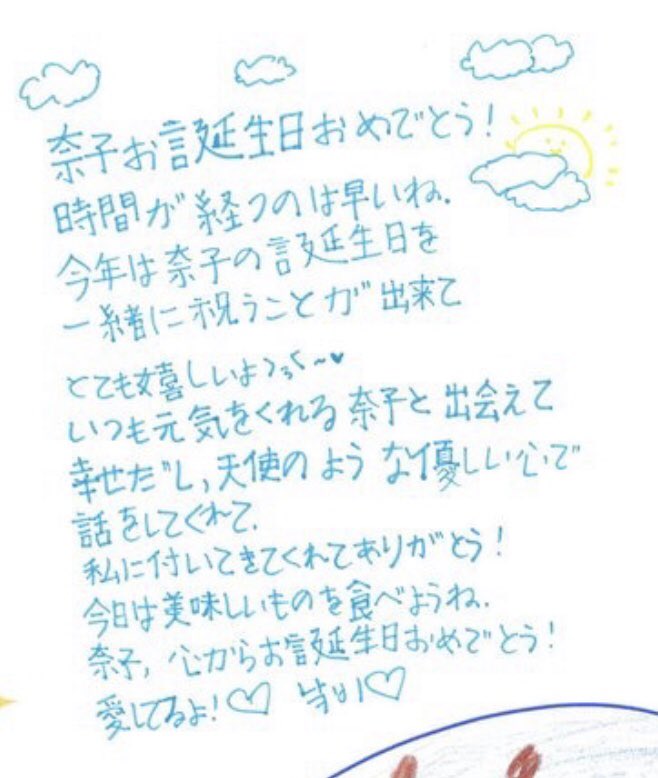 奈子お誕生日おめでとう!
時間が経つのは早いね.
今年は奈子の誕生日を
一緒に祝うことが出来て
とても嬉しいよ
いつも元気をくれる奈子と出会えて
幸せだし,天使のような優しい心で
話をしてくれて.
私に付いてきてくれてありがとう!
今日は美味しいものを食べようね.
奈子,心からお誕生日おめでとう!
愛してるよ!♡